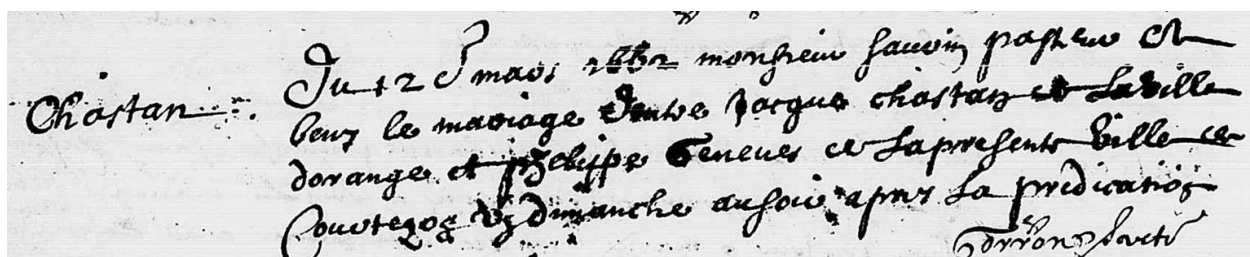 Du 12e mars 1652 monsieur Sauvin pasteur a
Chastan
beny le mariage dentre Jacques chastan de la ville
dorange et phelippe Geneves de la presente ville de
Courtezon ung dimanche au soir apres la predication